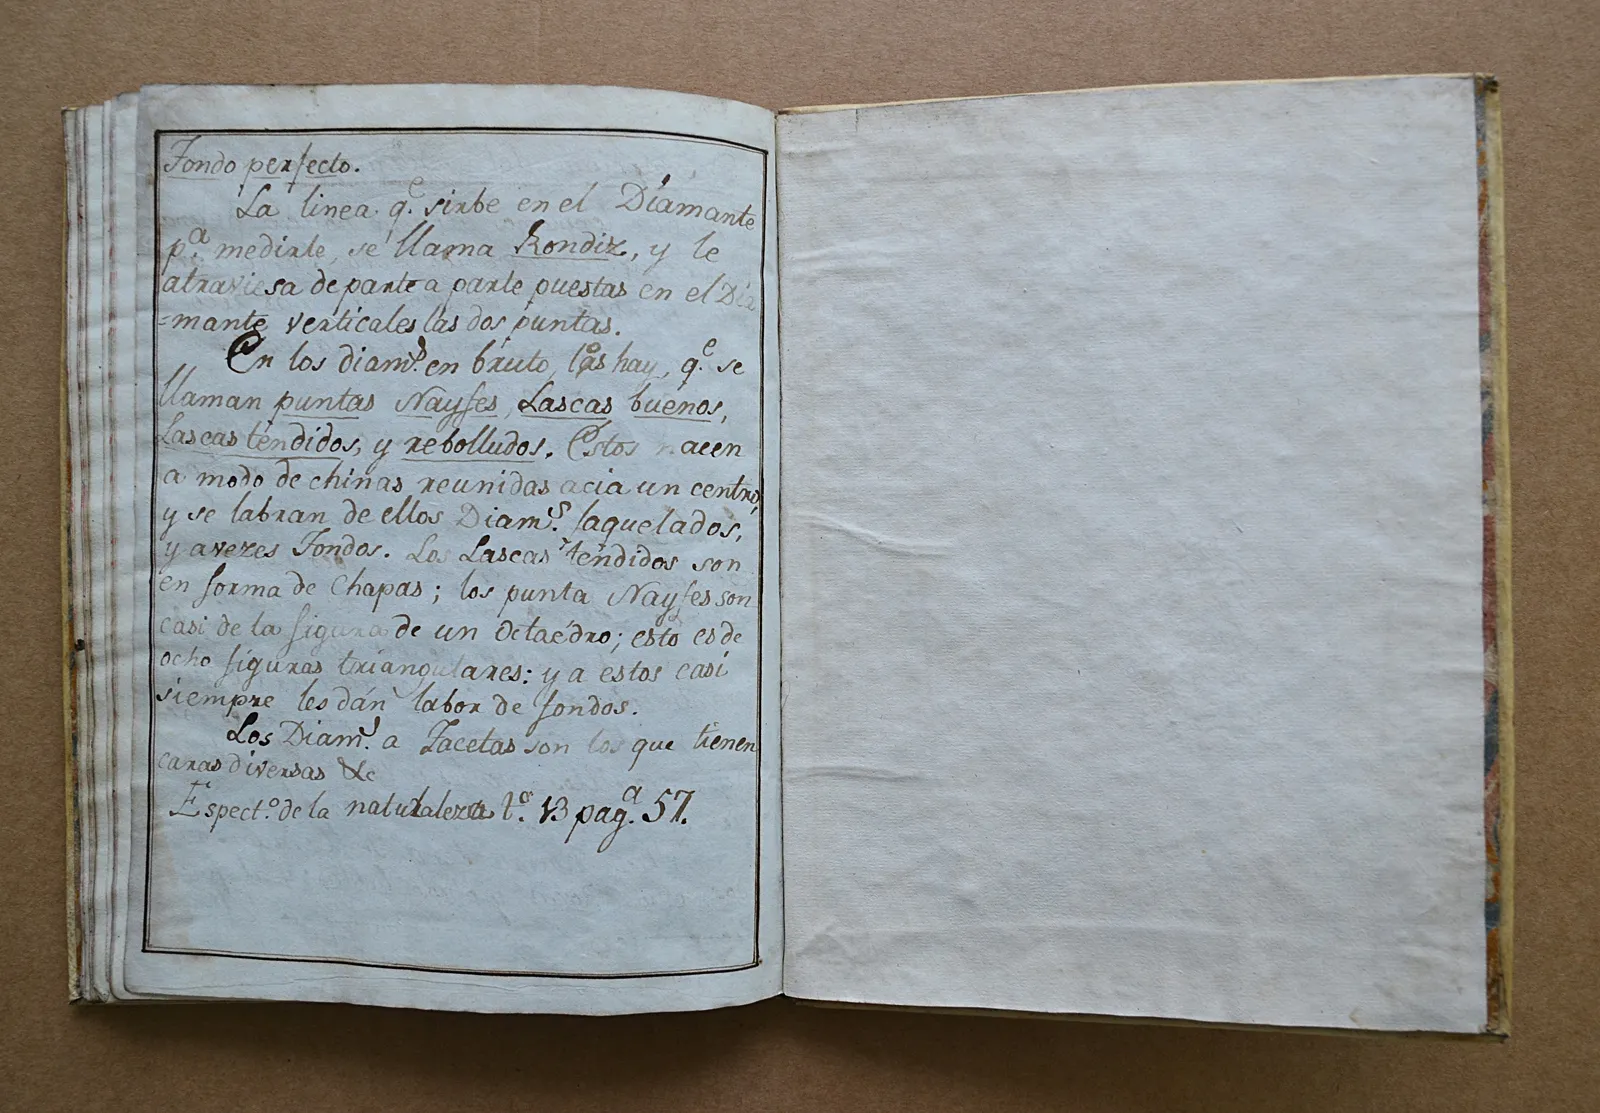 Fondo perfecto.
La linea q.e sirbe en el Diamante
p.a medirle, se llama Rondiz, y le
atraviesa de parte a parte puestas en el Dia
=mante verticales las dos puntas.
En los diam.s en bruto, los hay, q.e se
llaman puntas Nayfes, Lascas buenos,
Lascas tendidos, y rebolludos. Estos nacen
a modo de chinas reunidas acia un centro,
y se labran de ellos Diam.s jaquelados,
y a vezes Fondos. Los Lascas tendidos son
en forma de Chapas; los punta Nayfes son
casi de la figura de un Octaédro; esto es de
ocho figuras triangulares: y a estos casi
siempre les dán labor de fondos.
Los Diam.s a Facetas son los que tienen
caras diversas &c
Espect.o de la naturaleza t.o 13 pag.a 57.